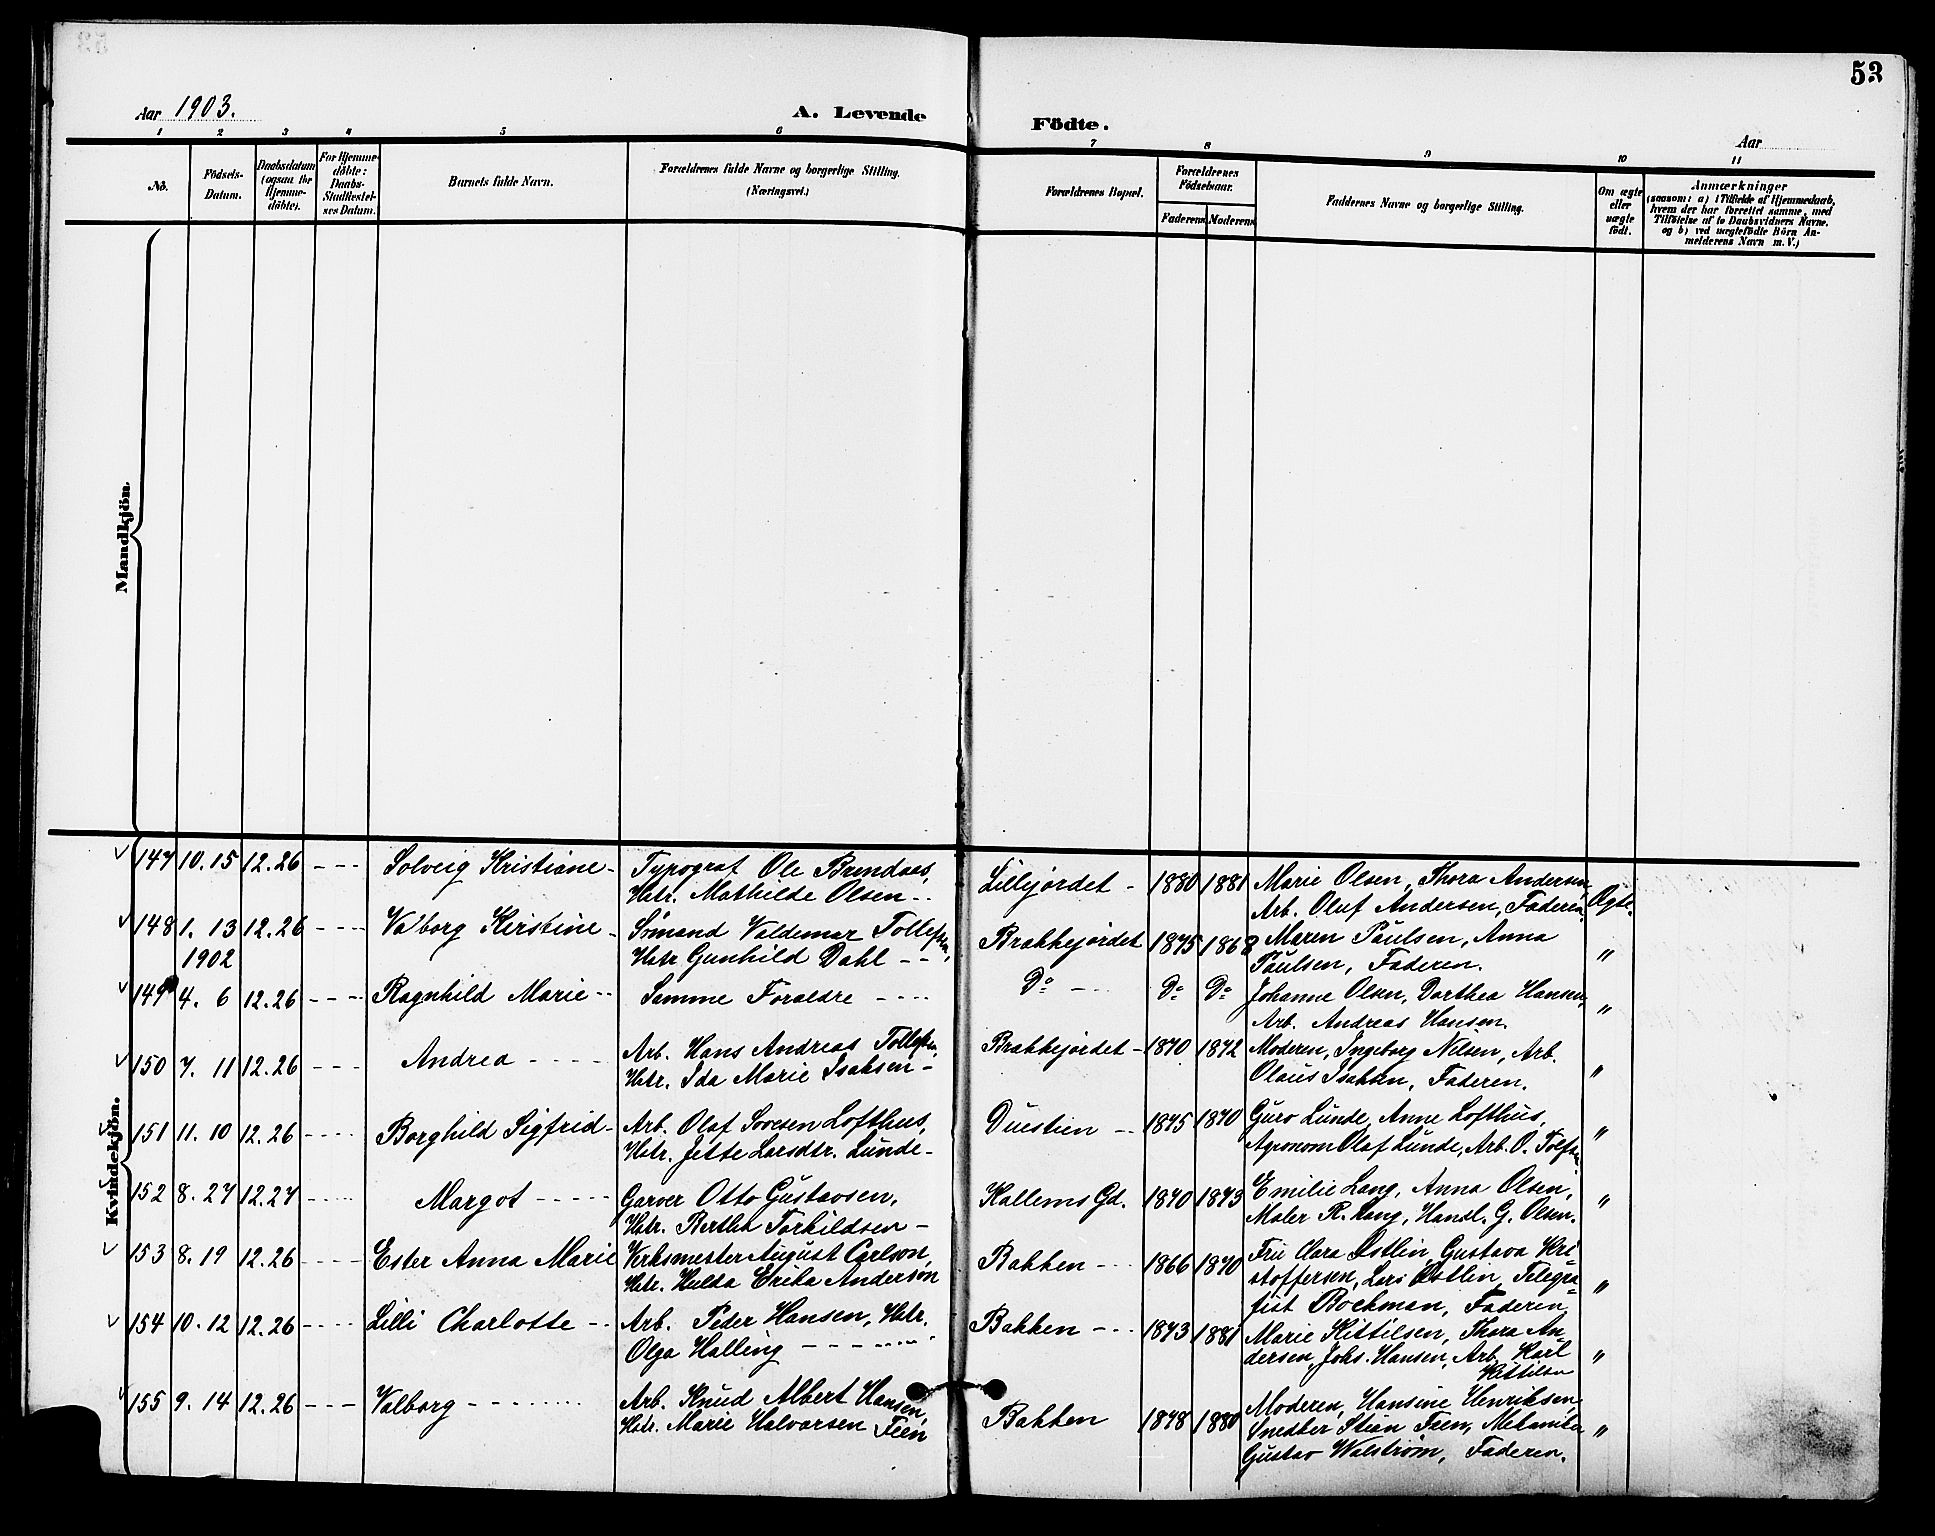 53
Aar 1903.
A. Levende Födte.
Aar
1 2 3 4 5 6 7 8 9 10 11
No.
Födsels-Datum.
Daabsdatum (ogsaa for Hjemme-döbte).
For Hjemme-döbte: Daabs-Stadfæstel-ses Datum.
Barnets fulde Navn.
Forældrenes fulde Navne og borgerlige Stilling.
(Næringsvei.)
Forældrenes Bopæl.
Forældrenes Födselsaar.
Faderens Moderens
Faddernes Navne og borgerlige Stilling.
Om ægte eller uægte födt.
Anmærkninger
(saasom: a) i Tilfælde af Hjemmedaab,
hvem der har forrettet samme, med
Tilföielse af to Daabsvidners Navne,
og b) ved uægtefödte Börn An-
melderens Navn m. V.)
Mandkjön.
Kvindekjön.
147 10. 15 12. 26 - - - Solveig Kristiane - Typograf Ole Brendaas, Lillejordet - 1880 1881 Marie Olsen, Thora Andersen Ægte.
Hstr. Mathilde Olsen - . Arb. Oluf Andersen, Faderen.
148 1. 13 12. 26 - - - Valborg Kirstine - Sømand Valdemar Tollefsen, Brakkejordet 1875 1868 Maren Paulsen, Anna "
1902 Hstr Gunhild Dahl - - Paulsen, Faderen.
149 4. 6 12. 26 - - - Ragnhild Marie - - Samme Foraldre - - - - Do - - - Do Do Johanne Olsen, Dorthea Hansen, "
Arb. Andreas Hansen.
150 7. 11 12. 26 - - - Andrea - - - - Arb. Hans Andreas Tollefsen, Brakkejordet - 1870 1872 Moderen, Ingeborg Nilsen, Arb. "
Hstr. Ida Marie Isaksen - Olaus Isaksen, Faderen.
151 11. 10 12. 26 - - - Borghild Sigfrid - Arb. Olaf Sovesen Lofthus, Duestien - - 1875 1870 Guro Lunde, Anne Lofthus, "
Hstr. Jette Larsdtr. Lunde - Agronom Olaf Lunde, Arb. O. Tolfsen
152 8. 27 12. 27 - - - Margot - - - - - Garver Otto Gustavsen, Kallems Gd. 1870 1873 Emilie Lang, Anna Olsen, "
Hstr. Bertha Torkildsen - Maler R. Lang, Handl. G. Olsen.
153 8. 19 12. 26 - - - Ester Anna Marie Verksmester August Carlson, Bakken - - - 1866 1870 Fru Clara Østlin, Gustava Kri- "
Hstr. Hulda Erika Anderson stoffersen, Lars Østlin, Telegra-
fist Bockman, Faderen,
154 10. 12 12. 26 - - - Lilli Charlotte - - Arb. Peder Hansen, Hstr. Bakken - - - 1873 1881 Marie Kittilsen, Thora An- "
Olga Halling - - - - - dersen, Johs. Hansen, Arb. Karl
Kittilsen
155 9. 14 12. 26 - - - Valborg - - - - - Arb. Knud Albert Hansen, Bakken 1878 1880 Moderen, Hansine Henriksen, "
Hstr. Marie Halvorsen Feen Snedker Stian Feen, Mekaniker
Gustav Walstrøm, Faderen.